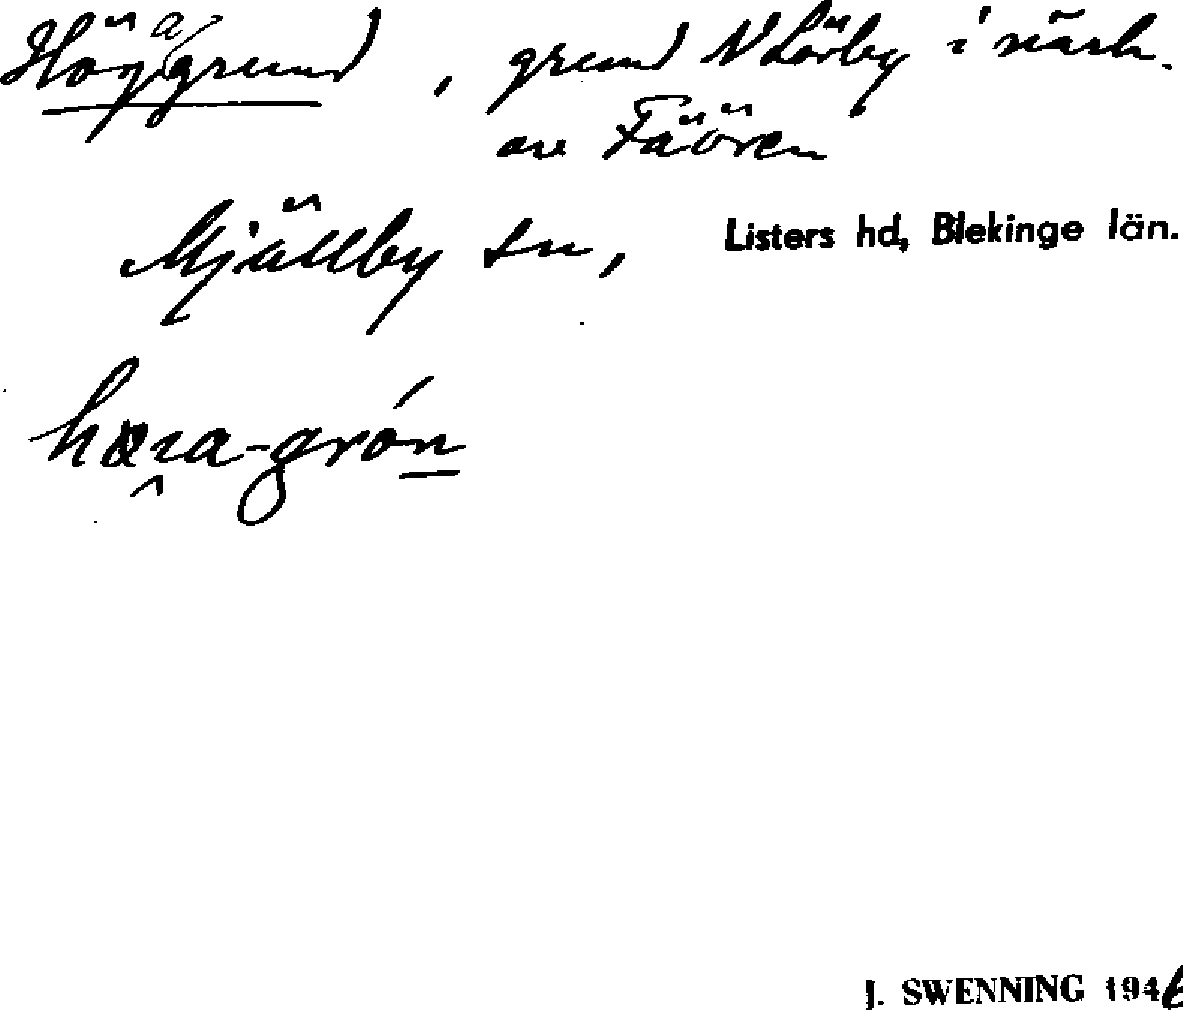 Högagrund, grund N Lörby i närh.
av Fäören
Mjällby sn, Listers hd, Blekinge län.
hæɪa-grón
J. SWENNING 1946